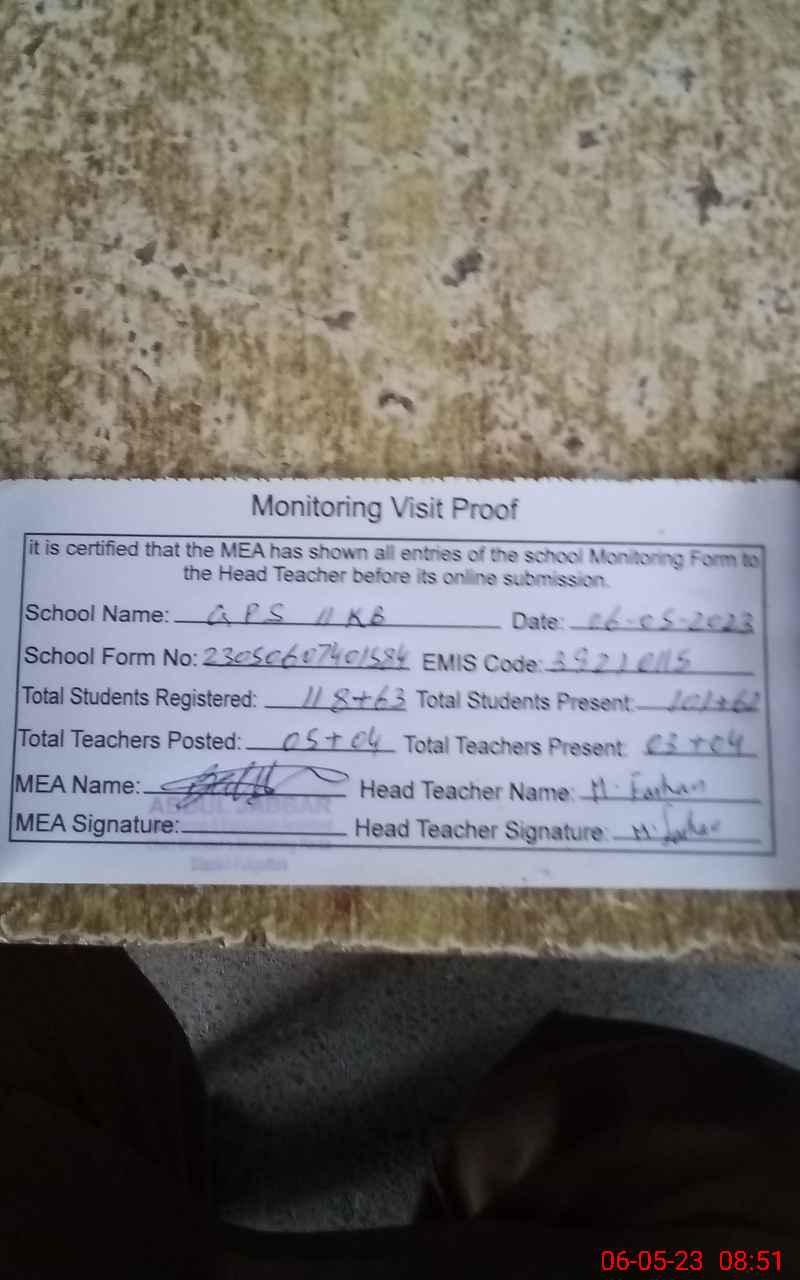 Monitoring Visit Proof
it is certified that the MEA has shown all entries of the school Monitoring Form to
the Head Teacher before its online submission.
School Name: GPS 11 KB Date: 06-05-2023
School Form No: 23050607401584 EMIS Code: 39210115
Total Students Registered: 118+63 Total Students Present: 101+62
Total Teachers Posted: 05+04 Total Teachers Present: 03+04
MEA Name: Head Teacher Name: M. Farhan
ABDUL JABBAR
MEA Signature: Head Teacher Signature: M. Farhan
06-05-23 08:51